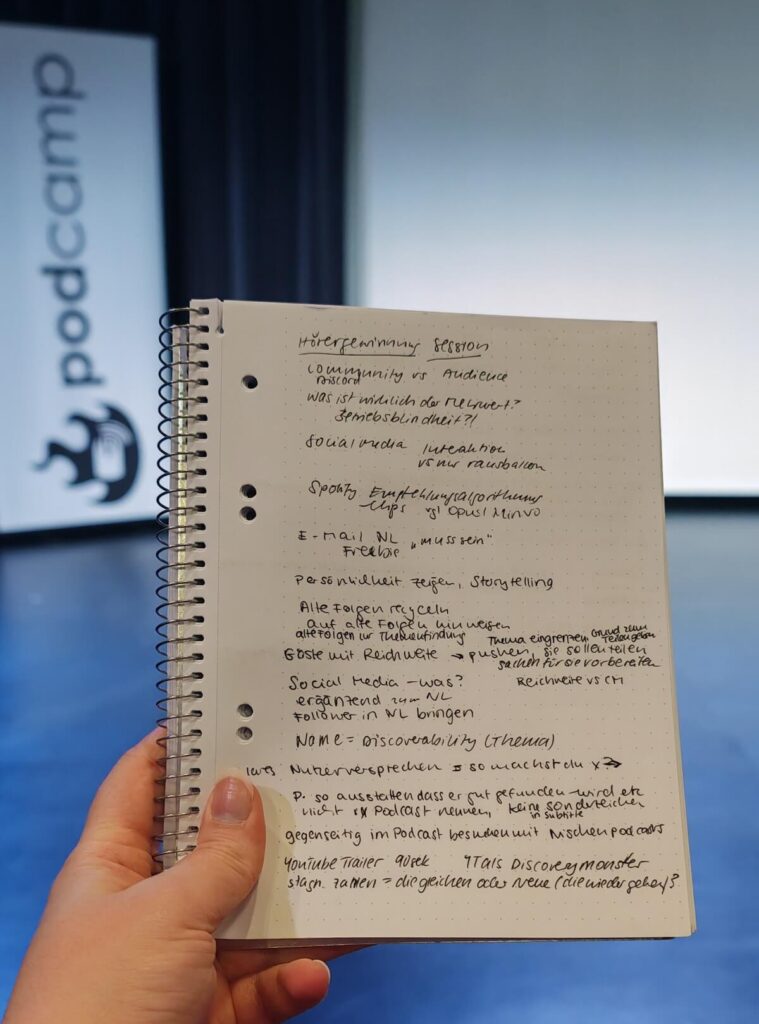 podcamp
Hörergewinnung Session
Community vs Audience
Discord
was ist wirklich der Mehrwert?
Betriebsblindheit?!
Social Media Interaktion
vs nur rausballern
Spotify Empfehlungsalgorithmus
Clips vgl Opus1 Minvo
E-Mail NL
Freebie „muss sein"
Persönlichkeit zeigen, Storytelling
Alte Folgen recyceln
auf alte Folgen hinweisen
alte Folgen zur Themenfindung Thema eingrenzen Grund zum Teilen geben
Gäste mit Reichweite → pushen, sie sollen teilen
Sachen für sie vorbereiten
Social Media - was? Reichweite vs CM
ergänzend zum NL
Follower in NL bringen
Name = Discoverability (Thema)
Nutzerversprechen = so machst du x
P. so ausstatten dass er gut gefunden wird etc
nicht Podcast nennen, keine Sonderzeichen
in Subtitle
gegenseitig im Podcast besuchen mit Nischenpodcasts
YouTube Trailer 90sek YT als Discoverymonster
stagn. Zahlen = die gleichen oder Neue (die wieder gehen)?